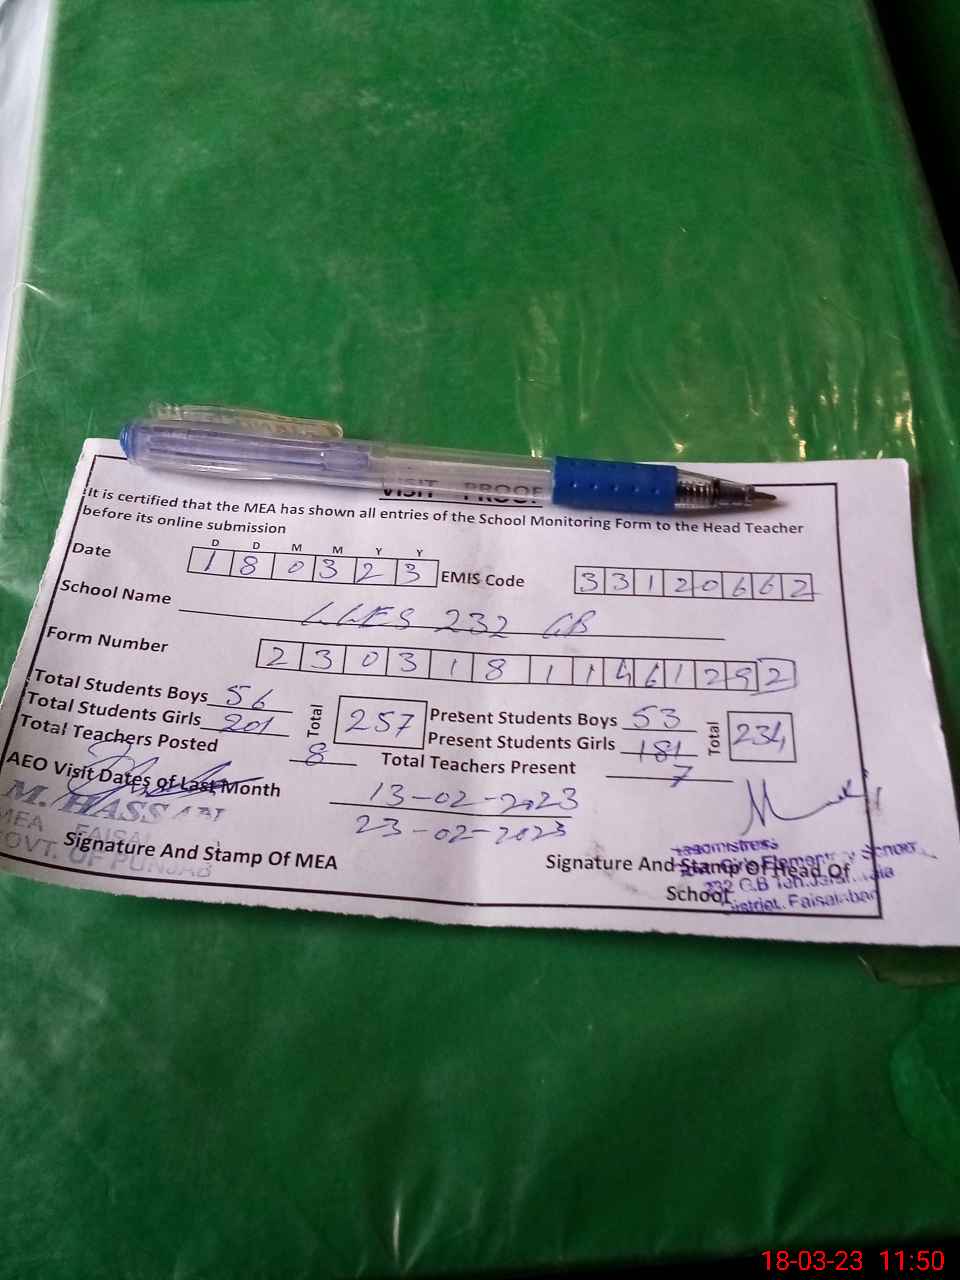 VISIT PROOF
It is certified that the MEA has shown all entries of the School Monitoring Form to the Head Teacher
before its online submission
D D M M Y Y
Date 1 8 0 3 2 3 EMIS Code 3 3 1 2 0 6 6 2
School Name GGES 232 GB
Form Number 2 3 0 3 1 8 1 1 4 6 1 2 9 2
Total Students Boys 56 Total 257 Present Students Boys 53 Total 234
Total Students Girls 201 Present Students Girls 181
Total Teachers Posted 8 Total Teachers Present 7
AEO Visit Dates of Last Month 13-02-2023
23-02-2023
M. HASSAN
MEA FAISAL
GOVT. OF PUNJAB
Signature And Stamp Of MEA
Signature And Stamp Of Head Of
School
Elementary School
232 G.B
District. Faisalabad
18-03-23 11:50